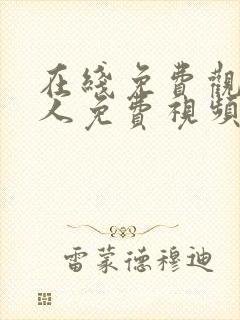 在綫免費觀
人免費視頻
雷蒙德穆迪